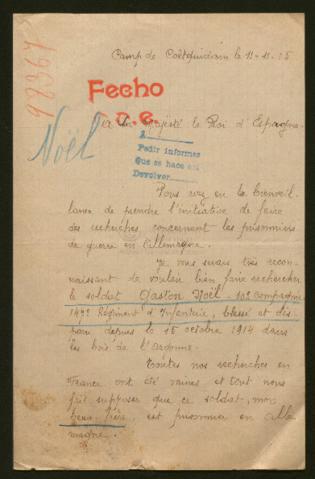 98367
Camp de Coëtquidam le 11-11.15
Fecho
C.e.
Noël
A Sa Majesté le Roi d'Espagne
2
Pedir informes
Que se hace así
Devolver
Vous avez eu la bienveil
lance de prendre l'initiative de faire
des recherches concernant les prisonniers
de guerre en Allemagne.
Je vous serais très recon-
naissant de vouloir bien faire rechercher
le soldat Gaston Noël, 10e compagnie
147e Régiment d'Infanterie, blessé et dis-
paru depuis le 15 octobre 1914 dans
les bois de l'Argonne.
Toutes nos recherches en
France ont été vaines et tout nous
fait supposer que ce soldat, mon
beau-frère, est prisonnier en Alle
magne.